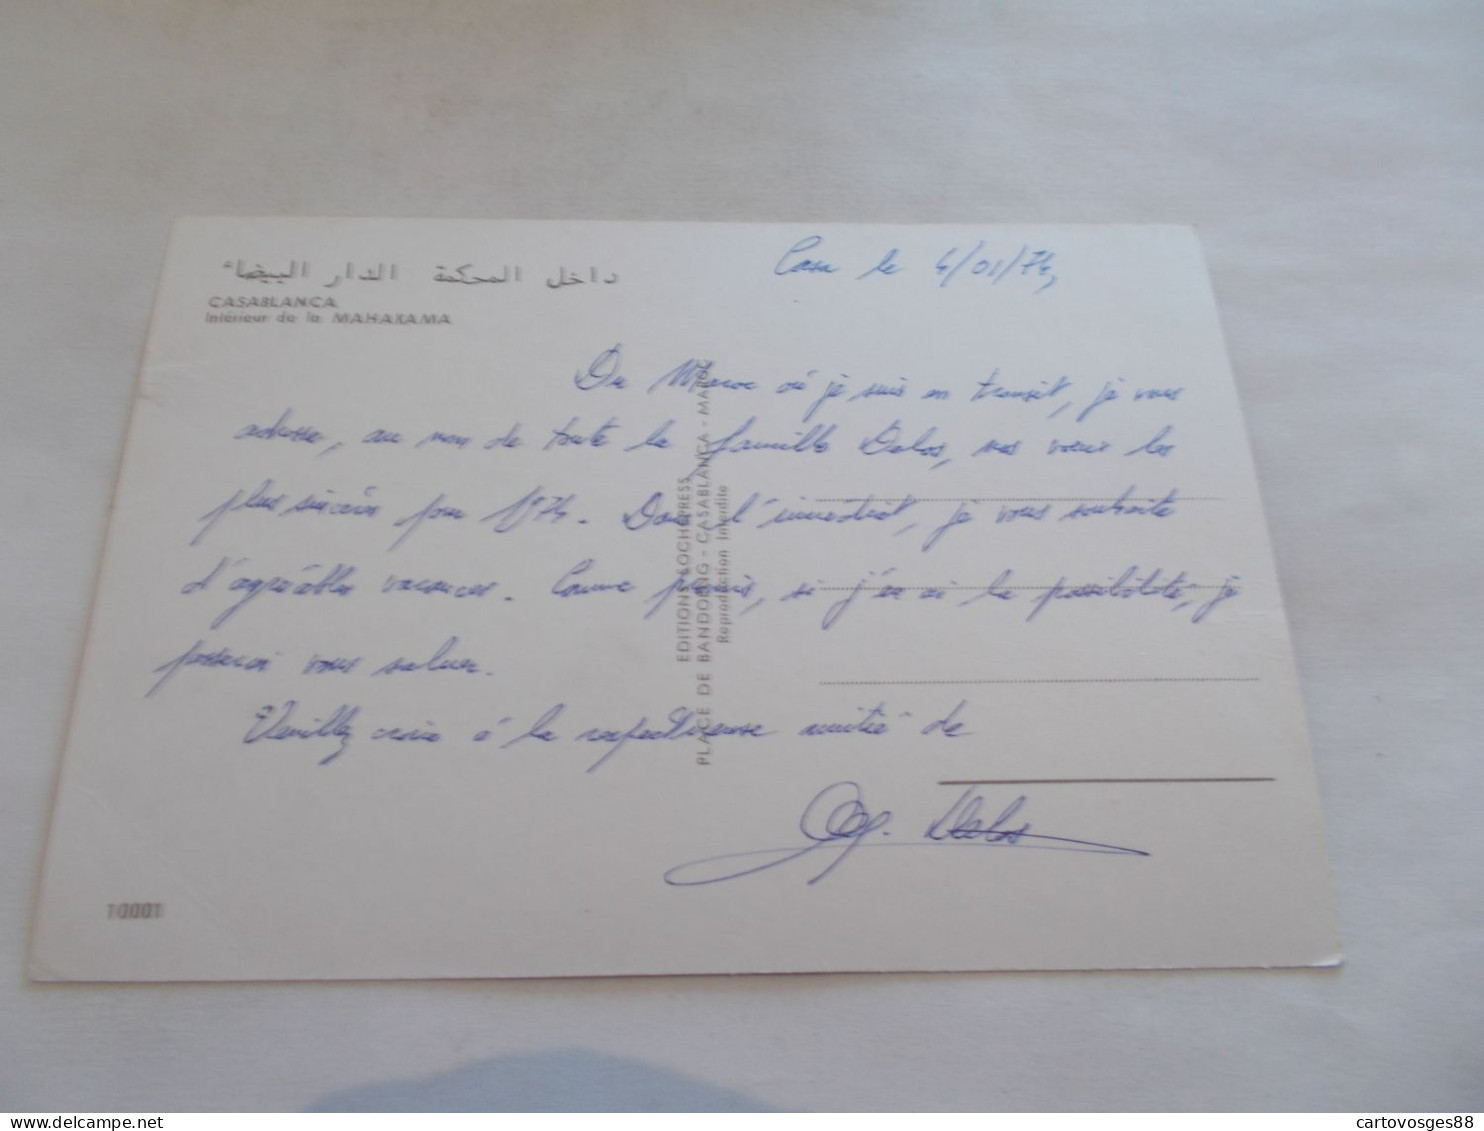 داخل المحكمة الدار البيضاء
CASABLANCA
Intérieur de la MAHAKAMA
Casa le 4/01/74,
Du Maroc où je suis en transit, je vous
adresse, au nom de toute la famille Delos, nos vœux les
plus sincères pour 1974. Dans l'immédiat, je vous souhaite
d'agréables vacances. Comme promis, si j'en ai la possibilité, je
passerai vous saluer.
Veuillez croire à la respectueuse amitié de
Delos
EDITIONS SOCHEPRESS
PLACE DE BANDOENG - CASABLANCA - MAROC
Reproduction Interdite
10001
cartovosges88